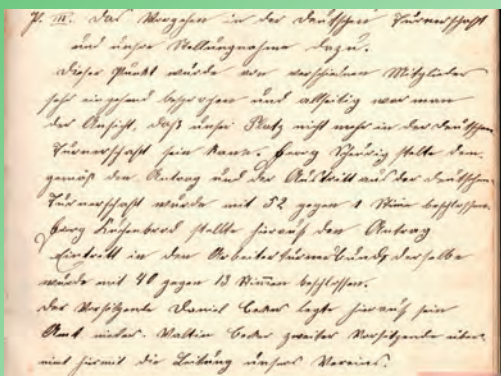 P. III. Das Vorgehen in der Deutschen Turnerschaft
und unsre Stellungnahme dazu.
Dieser Punkt wurde von verschiednen Mitglieder
sehr eingehend besprochen und allseitig war man
der Ansicht, daß unser Platz nicht mehr in der Deutschen
Turnerschaft sein kann. Georg Schürig stellte dem-
gemäß den Antrag und der Austritt aus der Deutschen-
Turnerschaft wurde mit 52 gegen 1 Stimme beschlossen.
Georg Küchenbrod stellte hierauf den Antrag
Eintritt in den Arbeiterturnerbund, derselbe
wurde mit 40 gegen 13 Stimmen beschlossen.
Der Vorsitzende Daniel Becker legte hierauf sein
Amt nieder. Valtin Becker zweiter Vorsitzende über-
nimt hiermit die Leitung unsers Vereins.